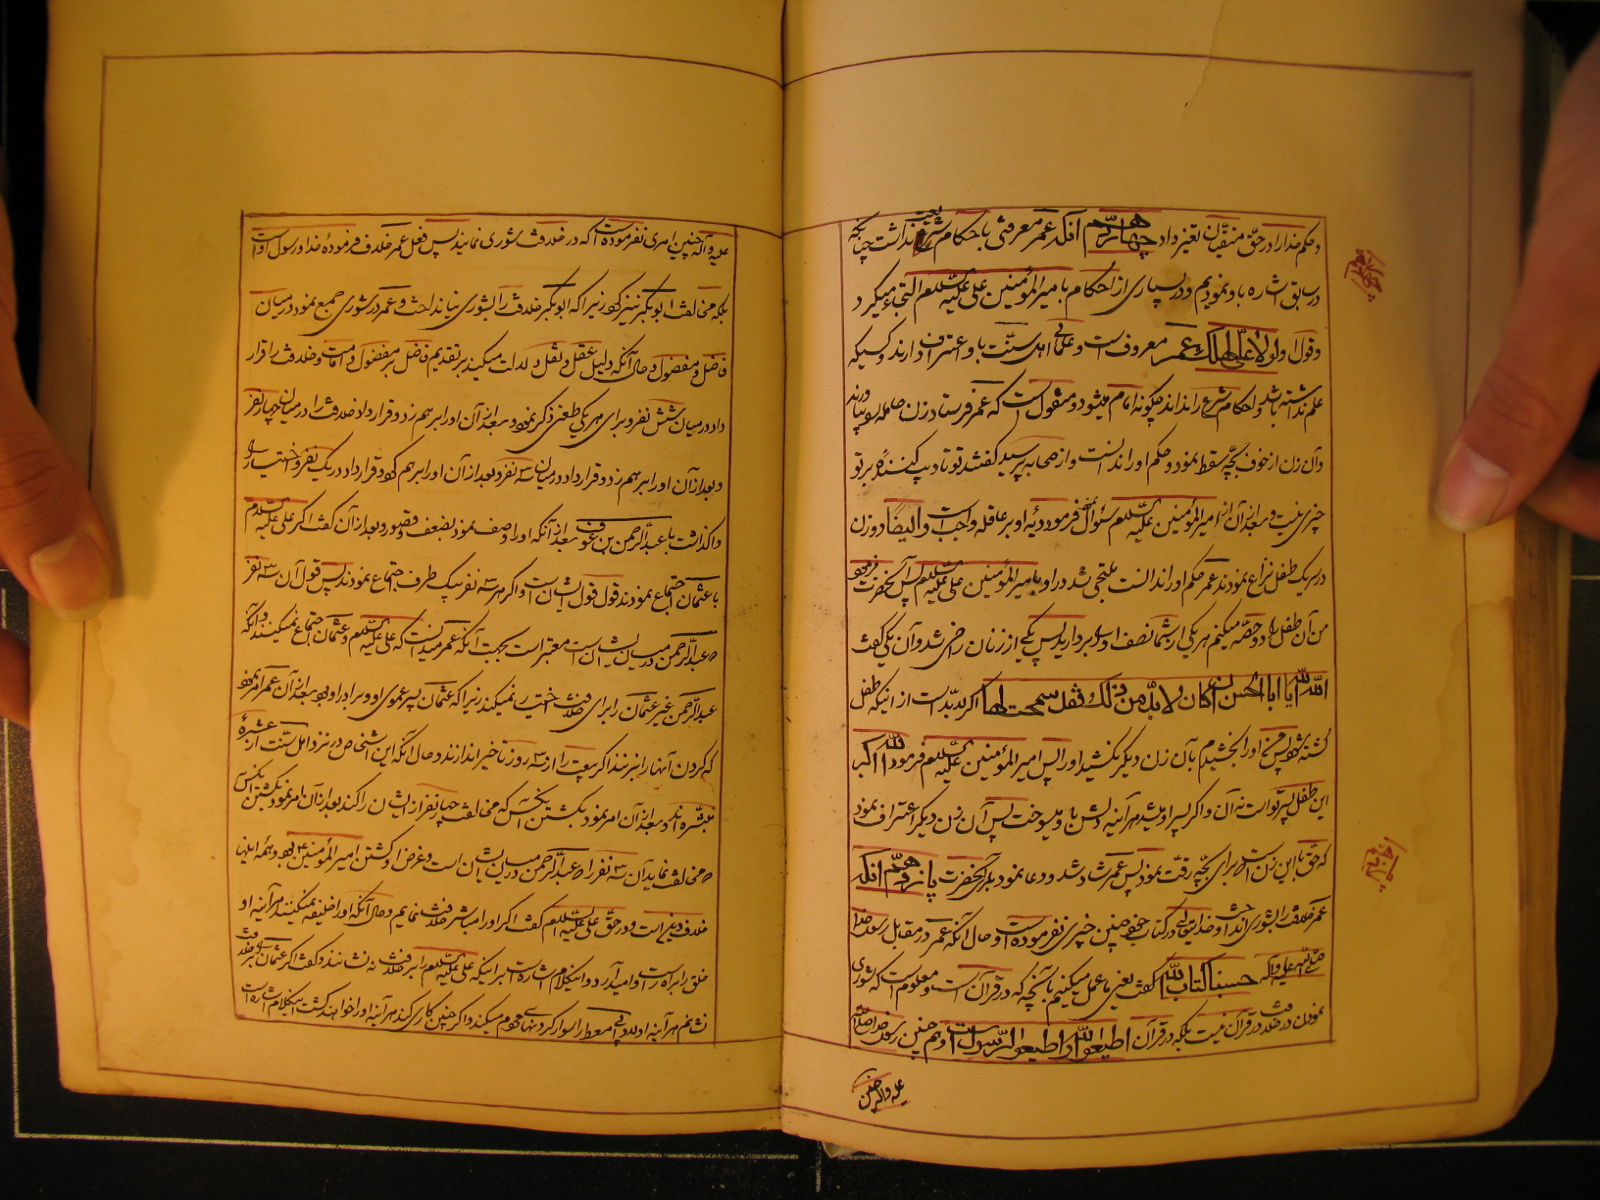 و حکم خدا را در حق منیقان تغیر داد چهاردهم آنکه عمر معرفتی باحکام شریعت نداشت چنانچه
در سابق اشاره باو نمودیم و در بسیاری از احکام بامیر المؤمنین علی علیه السلام التجاء میکرد
و قول او لولا علی لهلک عمر معروف است و علمای اهل سنت باو اعتراف دارند و کسیکه
علم نداشته باشد و احکام شرع را نداند چگونه امام میشود و منقول است که عمر فرستاد زن حامله را بیاورند
و آن زن از خوف بچه سقط نمود و حکم او را ندانست و از صحابه پرسید گفتند تو تادیب کننده بر تو
چیزی نیست و بعد از آن از امیر المؤمنین علیه السلام سئوال نمود فرمود دیه او بر عاقله واجب است و ایضا دو زن
در سر یک طفل نزاع نمودند عمر حکم او را ندانست ملتجی شد در او بامیر المؤمنین علی علیه السلام پس آنحضرت فرمود
من آن طفل را دو حصه میکنم هر یکی از شما نصف او را بردارید پس یکی از زنان راضی شد و آن یکی گفت
الله الله یا ابا الحسن ان کان لا بد من ذلک فقد سمحت لها اگر لابد است از اینکه طفل
کشته شود پس من او را بخشیدم بآن زن دیگر نکشید او را پس امیر المؤمنین علیه السلام فرمود الله اکبر
این طفل پسر تو است نه آن و اگر پسر او میشد هر آینه دلش باو میسوخت پس آن زن دیگر اعتراف نمود
که حق با این زن است برای بچه رقت نمود پس عمر شاد شد و دعا نمود بر آنحضرت پانزدهم آنکه
عمر خلافت را بشوری انداخت و خدایتعالی در کتاب خود چنین چیزی نفرموده است و حال آنکه عمر در مقابل رسول خدا
صلی الله علیه و آله حسبنا کتاب الله گفت یعنی ما عمل میکنیم بآنچه که در قرآن است و معلوم است که شوری
نمودن در خلافت در قرآن نیست بلکه در قرآن اطیعوا الله و اطیعوا الرسول است و هم چنین رسول خدا صلی الله
علیه و آله چنین
چهاردهم
پانزدهم
علیه و آله چنین امری نفرموده است که در خلافت بشوری نمایند پس فعل عمر خلاف فرموده خدا و رسول او است
بلکه مخالفت ابو بکر نیز کرد زیرا که ابو بکر خلافت را بشوری نینداخت و عمر در شوری جمع نمود در میان
فاضل و مفضول و حال آنکه دلیل عقل و نقل دلالت میکند بر تقدیم فاضل بر مفضول در امامت و خلافت را قرار
داد در میان شش نفر و برای هر یکی طعنی ذکر نمود و بعد از آن او را بر هم زد و قرار داد خلافت را در میان چهار نفر
و بعد از آن او را بر هم زد و قرار داد در میان سه نفر و بعد از آن او را بر هم کرد و قرار داد در یک نفر و اختیار را
واگذاشت با عبد الرحمن بن عوف بعد از آنکه او را وصف نمود بضعف و قصور و بعد از آن گفت اگر علی علیه السلام
با عثمان اجتماع نمودند قول قول ایشان است و اگر هر سه نفر بیک طرف اجتماع نمودند پس قول آن سه نفر
که عبد الرحمن در میان ایشان است معتبر است بجهت آنکه عمر میدانست که علی علیه السلام و عثمان اجتماع نمیکنند و آنکه
عبد الرحمن غیر عثمان را برای خلافت اختیار نمیکند زیرا که عثمان پسر عموی او و برادر او بود و بعد از آن عمر امر نمود
که گردن آنها را بزنند اگر بیعت را از سه روز تأخیر اندازند و حال آنکه این اشخاص در نزد اهل سنت از عشره
مبشره اند و بعد از آن امر نمود بکشتن یکی کس که مخالفت چهار نفر از ایشان را کند بعد از آن امر نمود بکشتن آنکس
که مخالفت نماید آن سه نفر را که عبد الرحمن در میان ایشان است و غرض او کشتن امیر المؤمنین بود و همه اینها
خلاف دین است و در حق علی علیه السلام گفت اگر او را مباشر خلافت نمایم و حال آنکه او را خلیفه نمیکنند هر آینه او
خلق را براه راست وامیدارد و این کلام اشاره است بر اینکه علی علیه السلام را بر خلافت نه نشانند و گفت اگر عثمان را بر خلافت
نشانم هر آینه اولاد ابی معیط را سوار گردنهای مردم میکند و اگر چنین کاری کند هر آینه او را خواهند کشت این کلام اشاره است